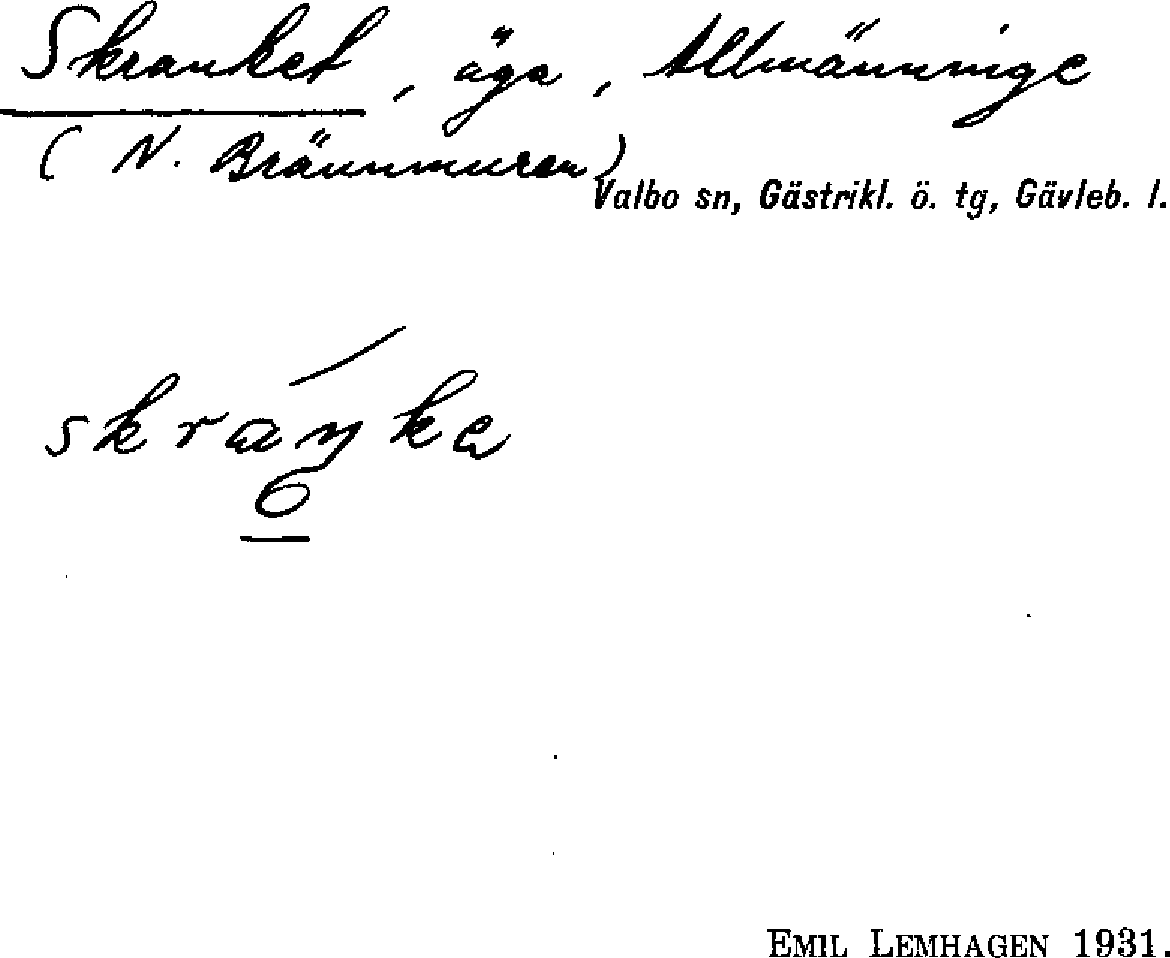 Skranket, äga, Allmänninge
(N. Brännmuren)
Valbo sn, Gästrikl. ö. tg, Gävleb. l.
skráŋka
6
EMIL LEMHAGEN 1931.